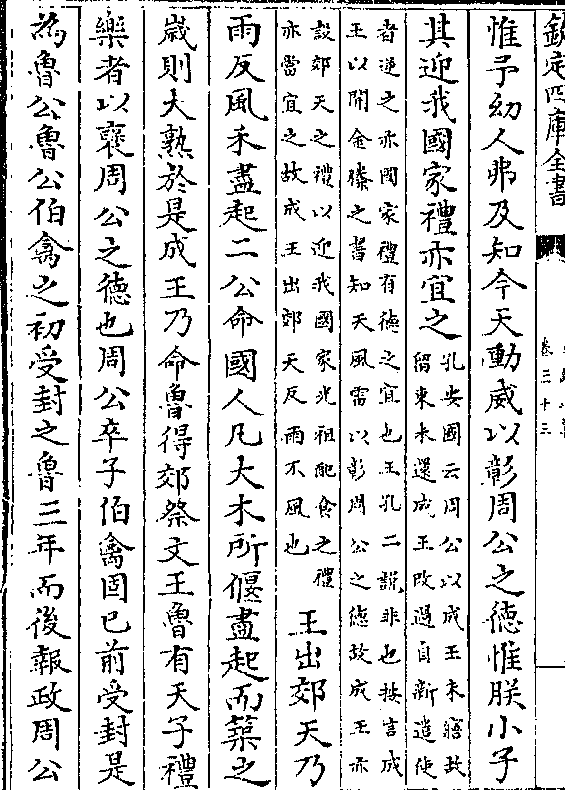 欽定四庫全書
卷三十三
惟予幼人弗及知今天動威以彰周公之德惟朕小子
其迎我國家禮亦宜之
孔安國云周公以成王未寤故
留東未還成王改過自新遣使
者逆之亦國家禮有德之宜也王孔二說非也按言成
王以開金縢之書知天風雷以彰周公之德故成王亦
設郊天之禮以迎我國家先祖配食之禮
亦當宜之故成王出郊天反雨不風也
王出郊天乃
雨反風禾盡起二公命國人凡大木所偃盡起而築之
歲則大熟於是成王乃命魯得郊祭文王魯有天子禮
樂者以襃周公之德也周公卒子伯禽固已前受封是
為魯公魯公伯禽之初受封之魯三年而後報政周公